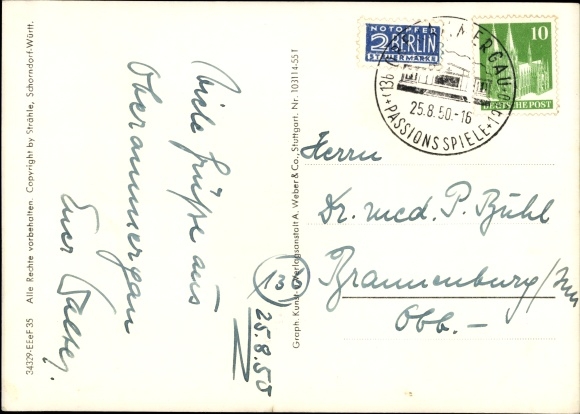 34329-EEeF 35 Alle Rechte vorbehalten. Copyright by Strähle, Schorndorf-Württ.
Viele Grüße aus
Oberammergau
Euer Walter.
25.8.50
Graph. Kunst- u. Verlagsanstalt A. Weber & Co., Stuttgart. Nr. 103114-55 T
NOTOPFER
2 BERLIN
STEUERMARKE
10
DEUTSCHE POST
25.8.50.-16
PASSIONSSPIELE
Herrn
Dr. med. P. Bühl
Brannenburg/Inn
(13b)
Obb. -